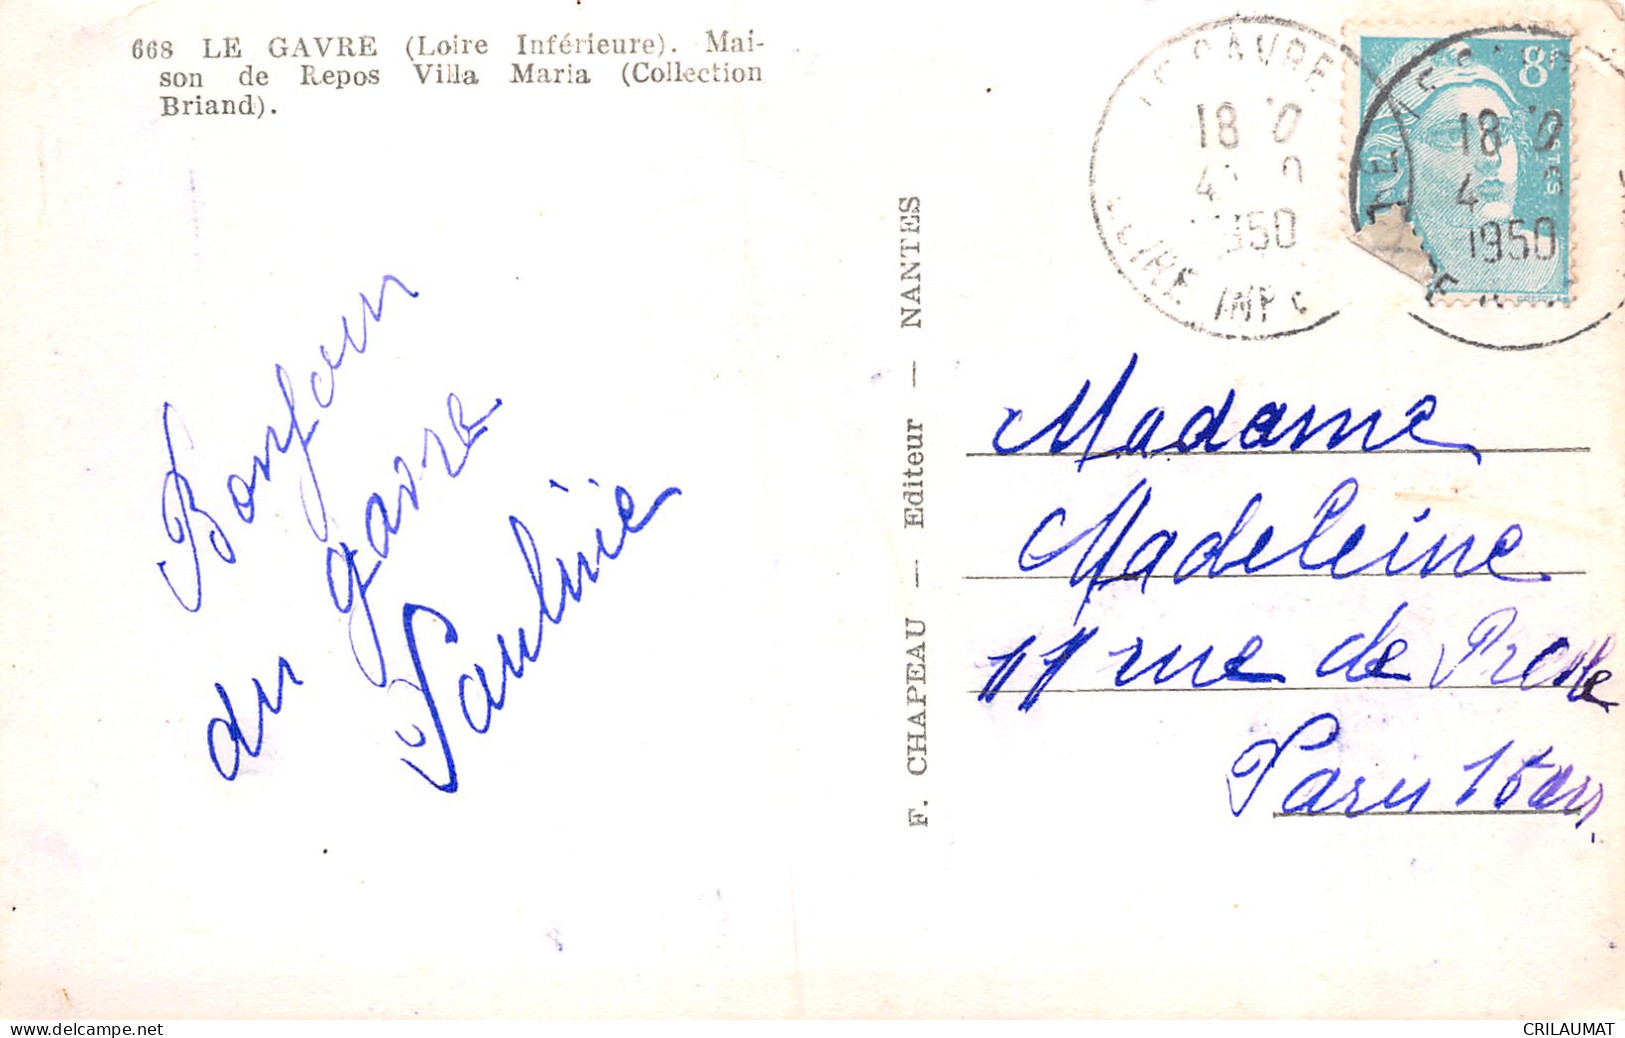 668 LE GAVRE (Loire Inférieure). Mai-
son de Repos Villa Maria (Collection
Briand).
Bonjour
du gavre
Pauline
F. CHAPEAU — Editeur — NANTES
LE GAVRE
18 0
4
1950
LOIRE INFRE
8F
POSTES
18 0
4
1950
Madame
Madeleine
11 rue de Presle
Paris 15
CRILAUMAT
www.delcampe.net